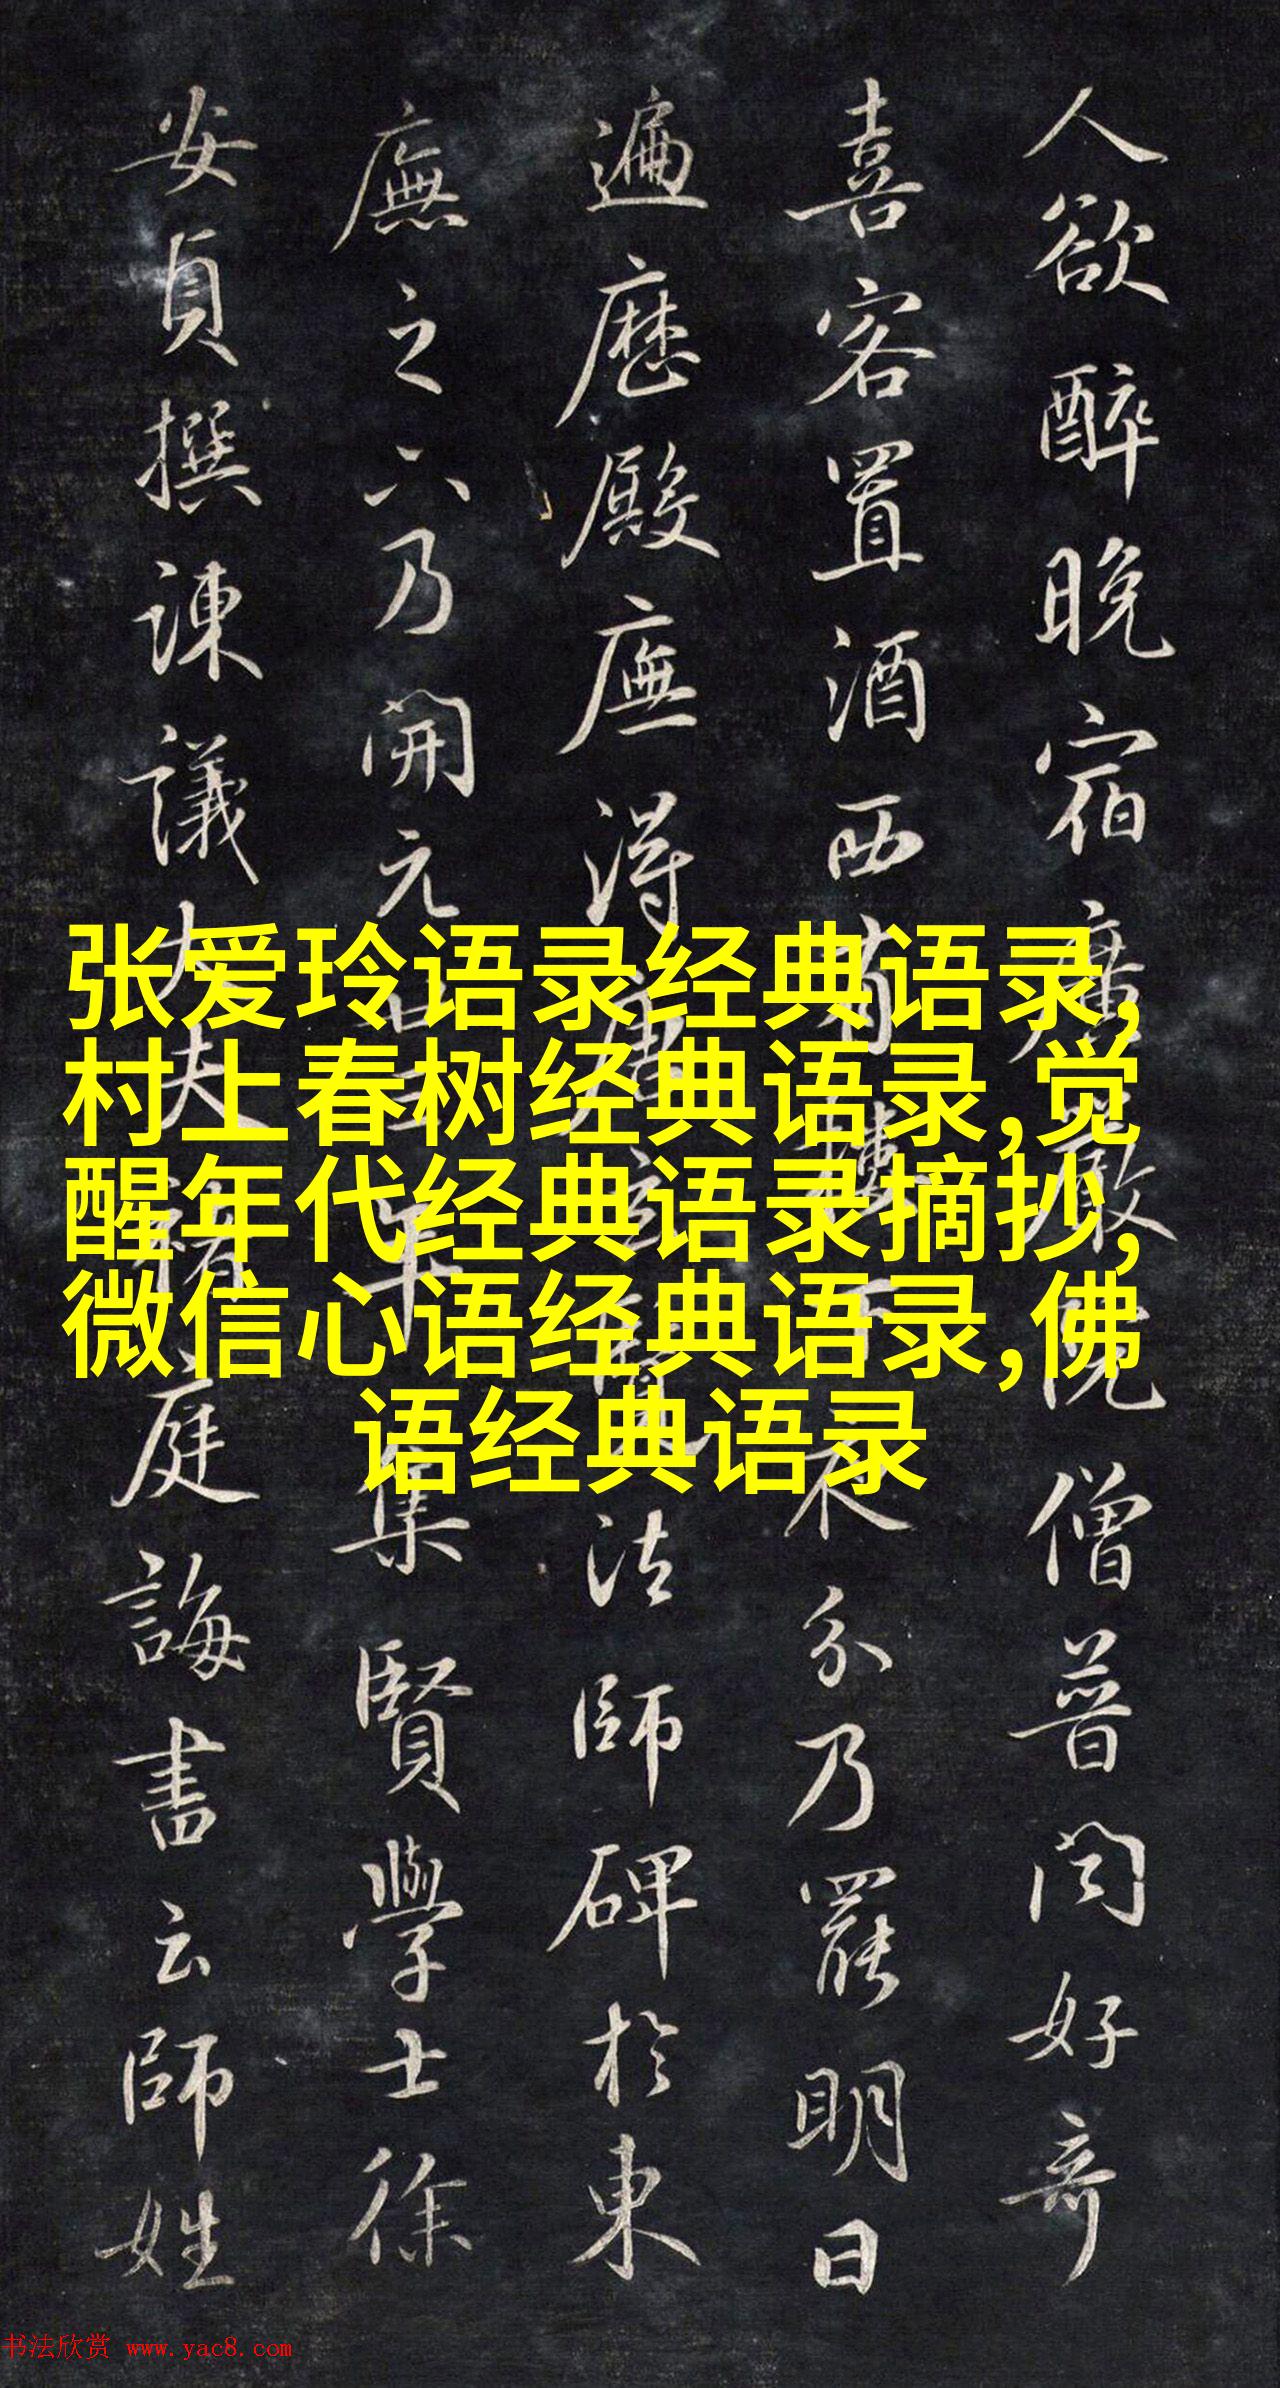 人欲醉晚宿廣嚴院僧普聞好奇
喜客置酒西樓下夜分乃罷明日
遍歷殿廡得唐玄覽法師碑於東
廡之下乃開元廿年集賢學士徐
安貞撰諫議大夫褚庭誨書云師姓
张爱玲语录经典语录,
村上春树经典语录,觉
醒年代经典语录摘抄,
微信心语经典语录,佛
语经典语录
书法欣赏 www.yac8.com